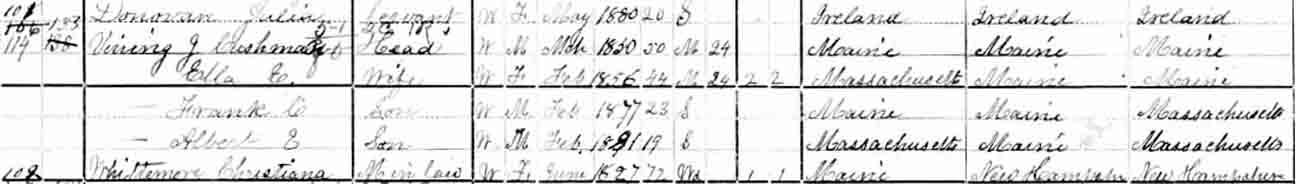 Donovan Julia Servant W F May 1880 20 S Ireland Ireland Ireland
Vining J Cushman Head W M Mch 1850 50 M 24 Maine Maine Maine
Ella E Wife W F Feb 1856 44 M 24 2 2 Massachusetts Maine Maine
— Frank C Son W M Feb 1877 23 S Maine Maine Massachusetts
— Albert E Son W M Feb 1881 19 S Massachusetts Maine Massachusetts
Whittemore Christiana M in law W F June 1827 72 Wd 1 1 Maine New Hampshire New Hampshire